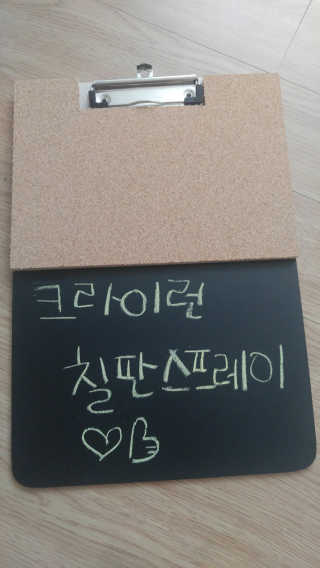 크라이런
칠판스프레이
♡